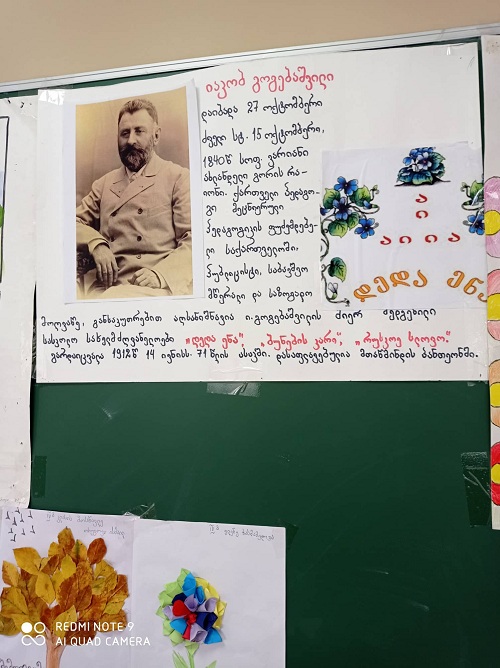 იაკობ გოგებაშვილი
დაიბადა 27 ოქტომბერი
ძველი სტ. 15 ოქტომბერი,
1840წ სოფ. ვარიანი
ახლანდელი გორის რა-
იონი. ქართველი პედაგო-
გი მეცნიერული
პედაგოგიკის ფუძემდებე-
ლი საქართველოში,
პუბლიცისტი, საბავშვო
მწერალი და საზოგადო
მოღვაწე, განსაკუთრებით აღსანიშნავია ი.გოგებაშვილის მიერ შედგენილი
სასკოლო სახელმძღვანელოები „დედა ენა", „ბუნების კარი", „რუსკოე სლოვო."
გარდაიცვალა 1912წ 14 ივნისს. 71 წლის ასაკში. დასაფლავებულია მთაწმინდის პანთეონში.
ა
ი
აი ია
დედა ენა
REDMI NOTE 9
AI QUAD CAMERA